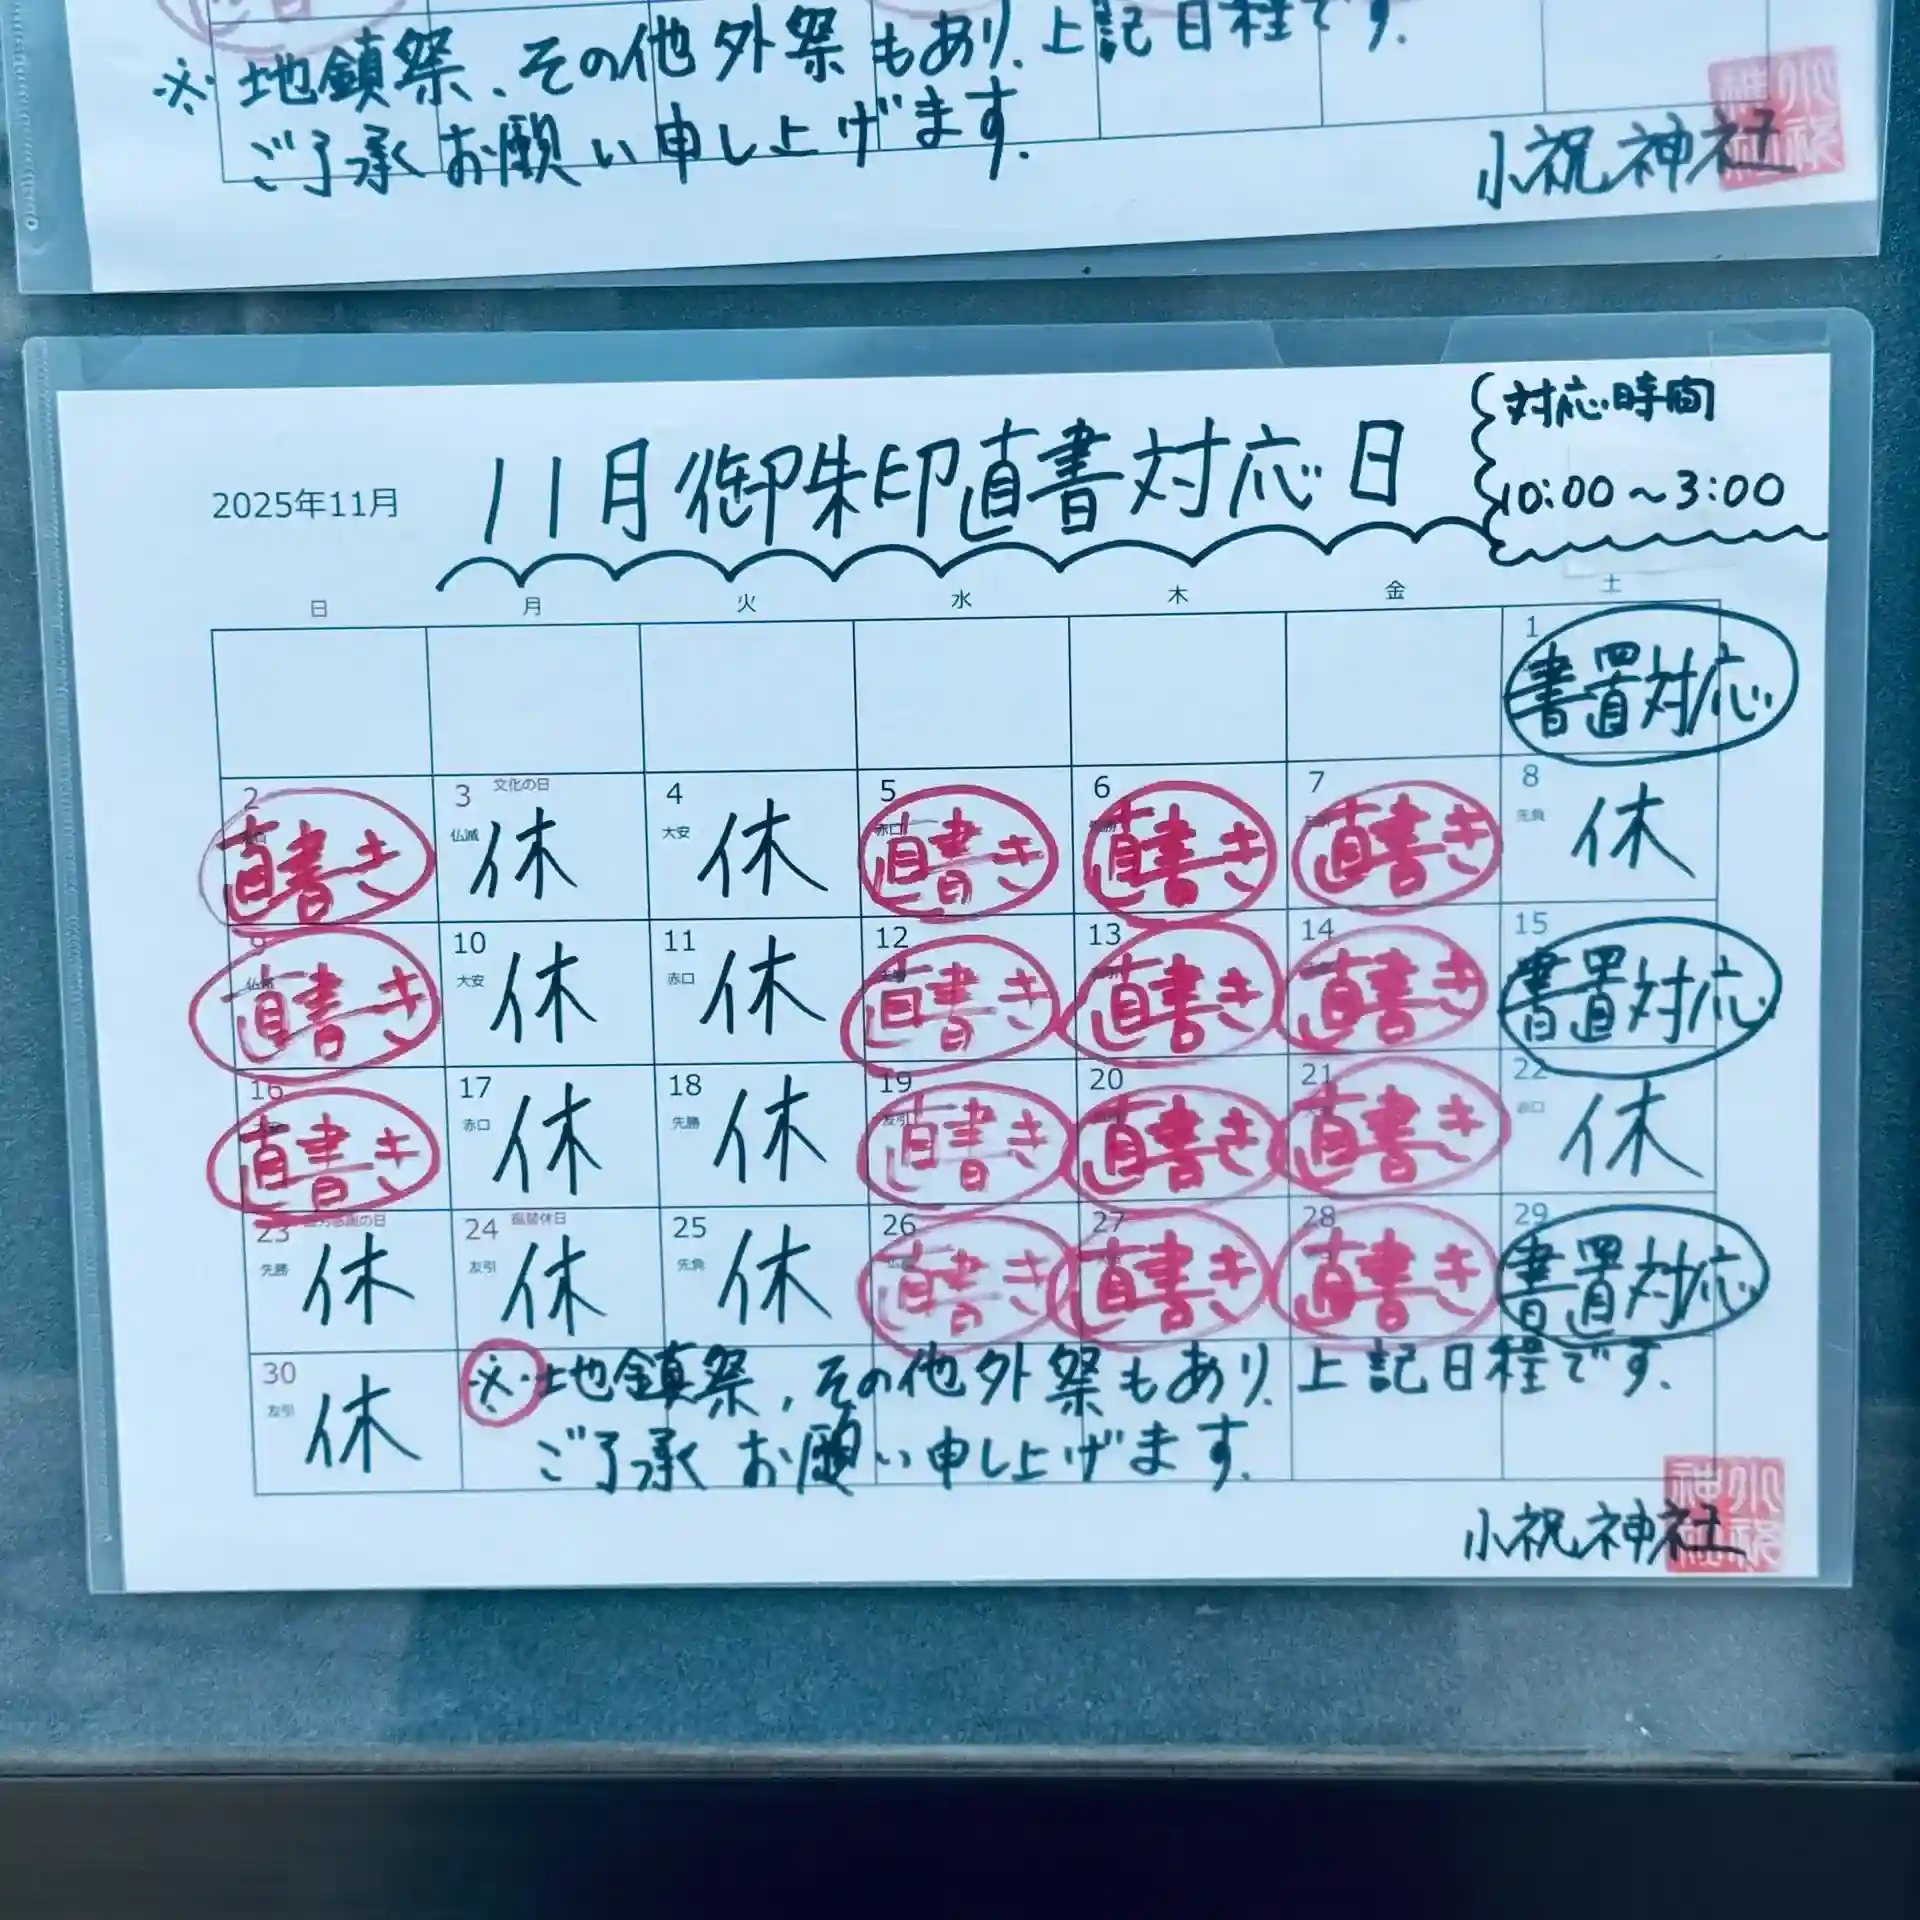 ※地鎮祭、その他外祭もあり、上記日程です.
ご了承お願い申し上げます.
小祝神社
2025年11月
11月御朱印直書対応日
対応時間
10:00～3:00
日 月 火 水 木 金 土
1
書置対応
2 3 文化の日 4 5 6 7 8
仏滅 大安 赤口 先負
直書き 休 休 直書き 直書き 直書き 休
9 10 11 12 13 14 15
仏滅 大安 赤口
直書き 休 休 直書き 直書き 直書き 書置対応
16 17 18 19 20 21 22
赤口 先勝 友引 赤口
直書き 休 休 直書き 直書き 直書き 休
23 24 振替休日 25 26 27 28 29
先勝 友引 先負
休 休 休 直書き 直書き 直書き 書置対応
30
友引
休
※地鎮祭、その他外祭もあり、上記日程です.
ご了承お願い申し上げます.
小祝神社